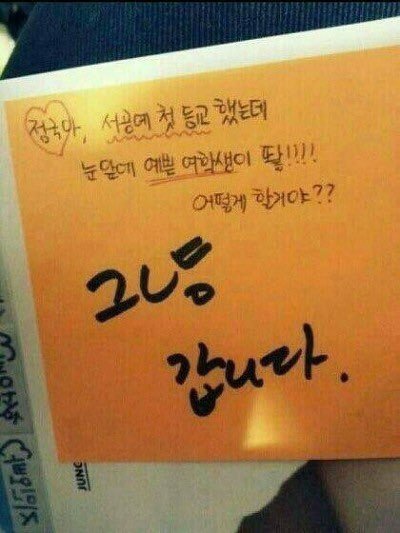 정국아, 서공예 첫 등교 했는데
눈앞에 예쁜 여학생이 딱!!!!
어떻게 할거야??
그냥
갑니다.
JUNG
지민오빠